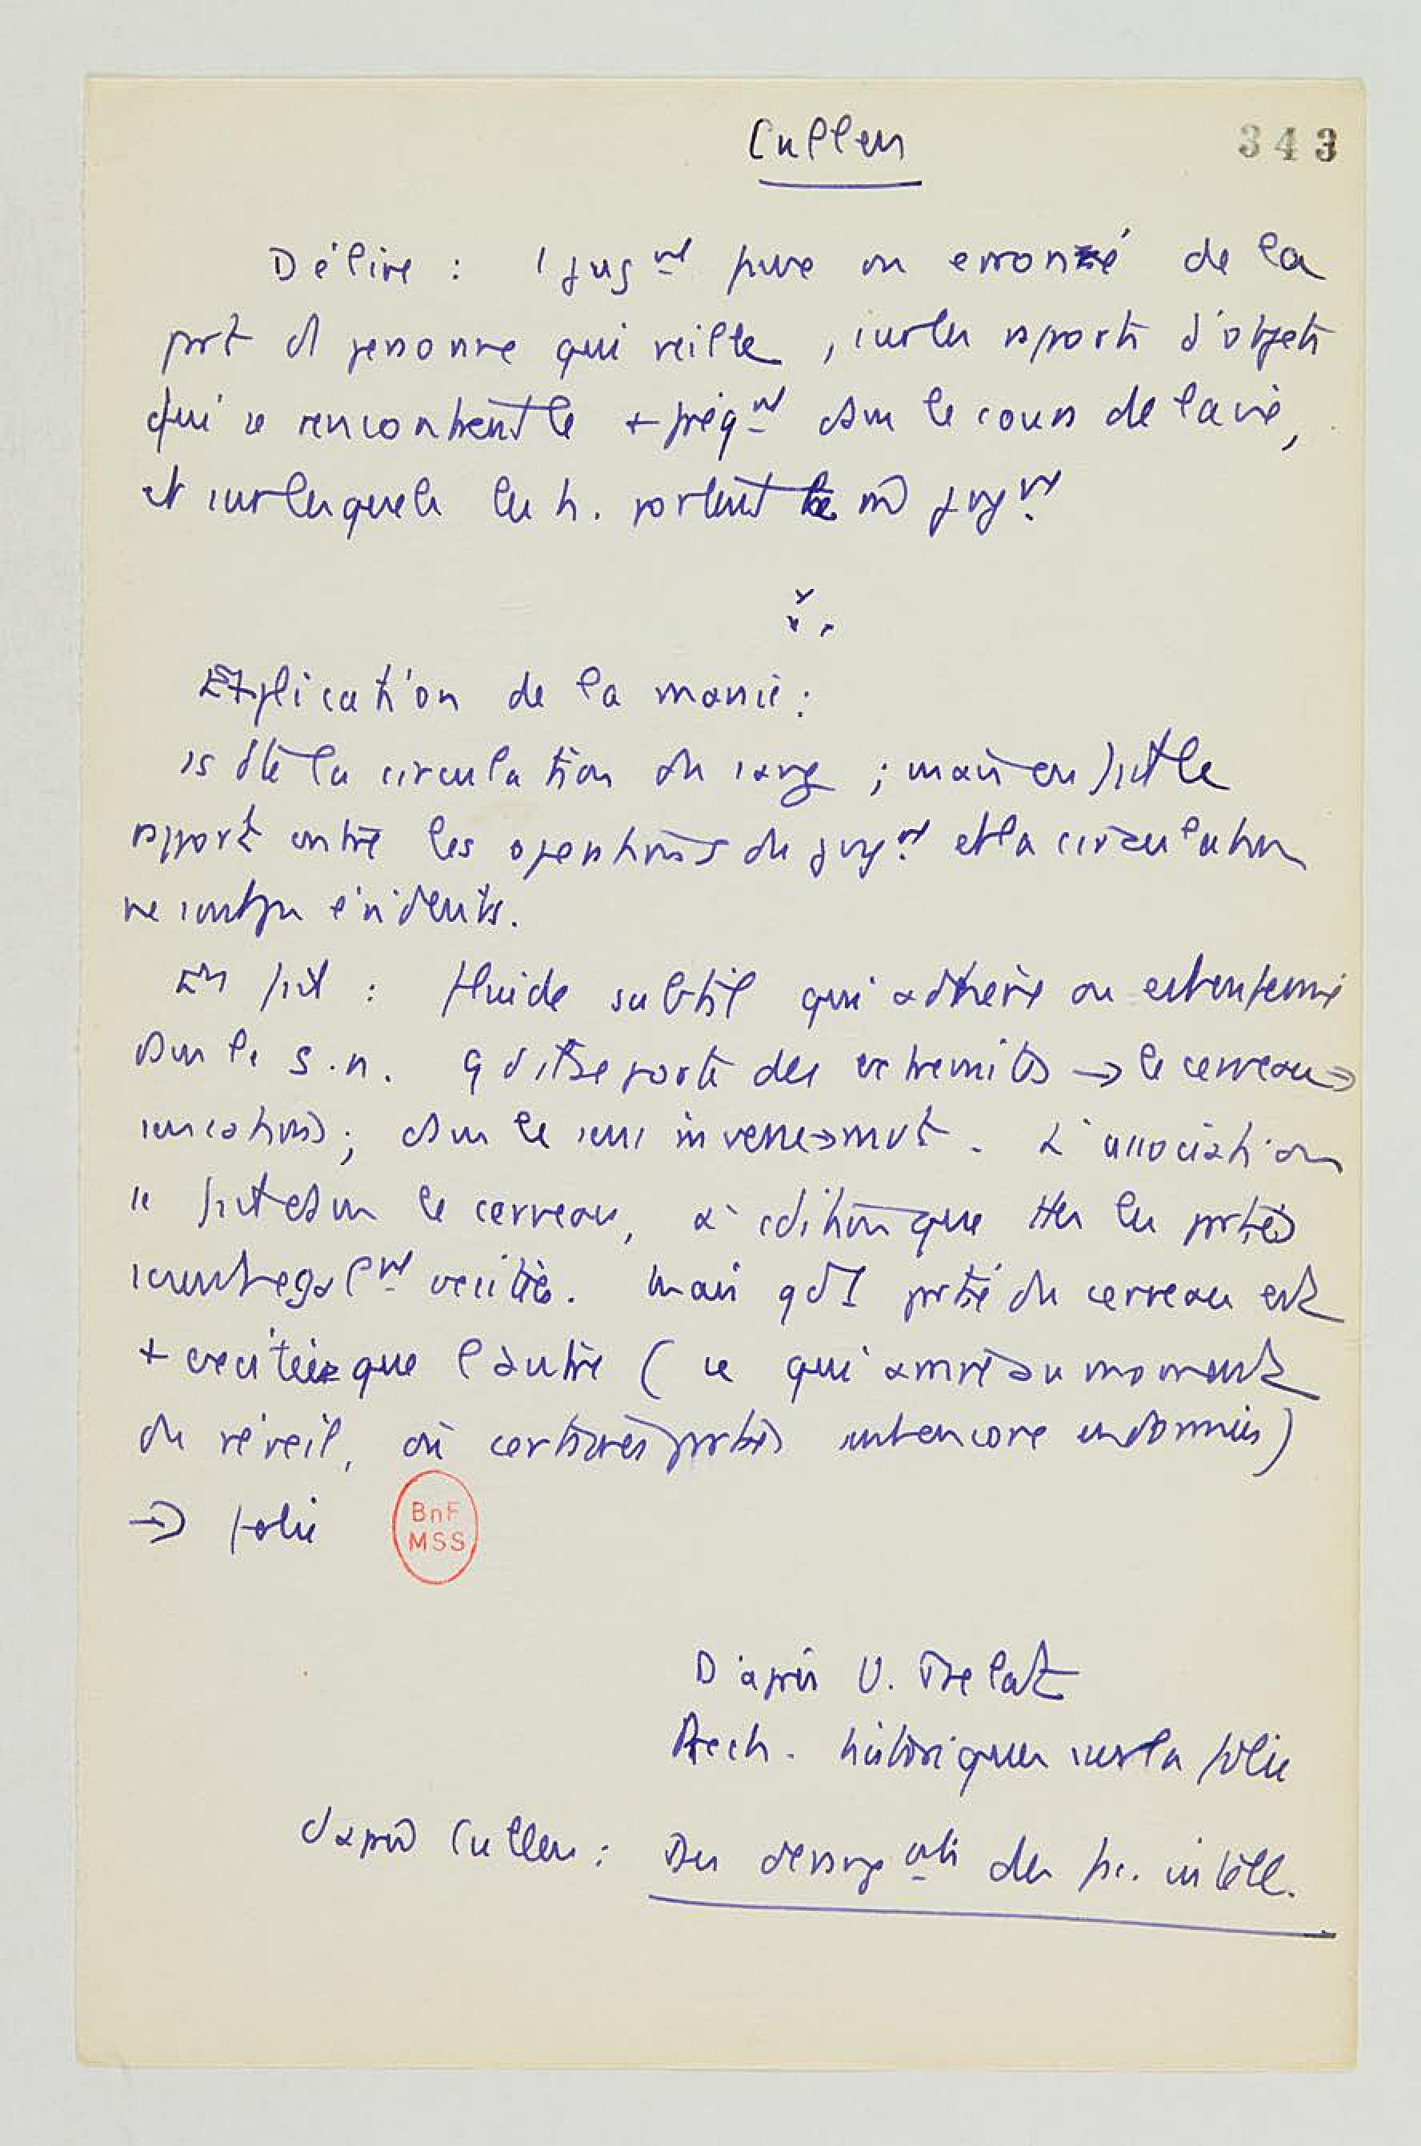 Cullen
343
Délire : 1 jugnt faux ou erroné de la
part d'1 personne qui veille, sur les rapports d'objets
qui se rencontrent le + fréqnt dans le cours de la vie,
et sur lesquels les h. portent le m̂ jugnt
Explication de la manie :
la circulation du sang ; mais en fait le
rapport entre les opérations du jugnt et la circulation
ne sont pas évidents.
En fait : fluide subtil qui adhère ou est renfermé
dans le s.n. qd il se porte des extrémités → le cerveau ⇒
sensations ; dans le sens inverse → mvt. L'association
se fait dans le cerveau, à cdition que ttes les parties
soient egalnt excitées. Mais qd 1 partie du cerveau est
+ excitée que l'autre (ce qui arrive au moment
du réveil, où certaines parties sont encore endormies)
→ folie
BnF
MSS
D'après U. Trelat
Rech. historiques sur la folie
d'après Cullen : Des dérangnts des fc. intell.